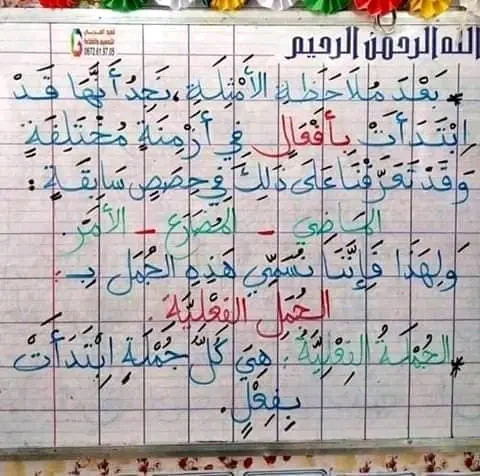 الله الرحمن الرحيم
0672.61.97.05
* بَعْدَ مُلَاحَظَةِ الأَمْثِلَةِ، نَجِدُ أَنَّهَا قَدْ
اِبْتَدَأَتْ بِأَفْعَالٍ فِي أَزْمِنَةٍ مُخْتَلِفَةٍ
وَقَدْ تَعَرَّفْنَا عَلَى ذَلِكَ فِي حِصَصٍ سَابِقَةٍ :
المَاضِي - المُضَارِع - الأَمْر.
وَلِهَذَا فَإِنَّنَا نُسَمِّي هَذِهِ الجُمَل بِـ :
الجُمَل الفِعْلِيَّة.
* الجُمْلَةُ الفِعْلِيَّةُ : هِيَ كُلُّ جُمْلَةٍ اِبْتَدَأَتْ
بِفِعْلٍ.